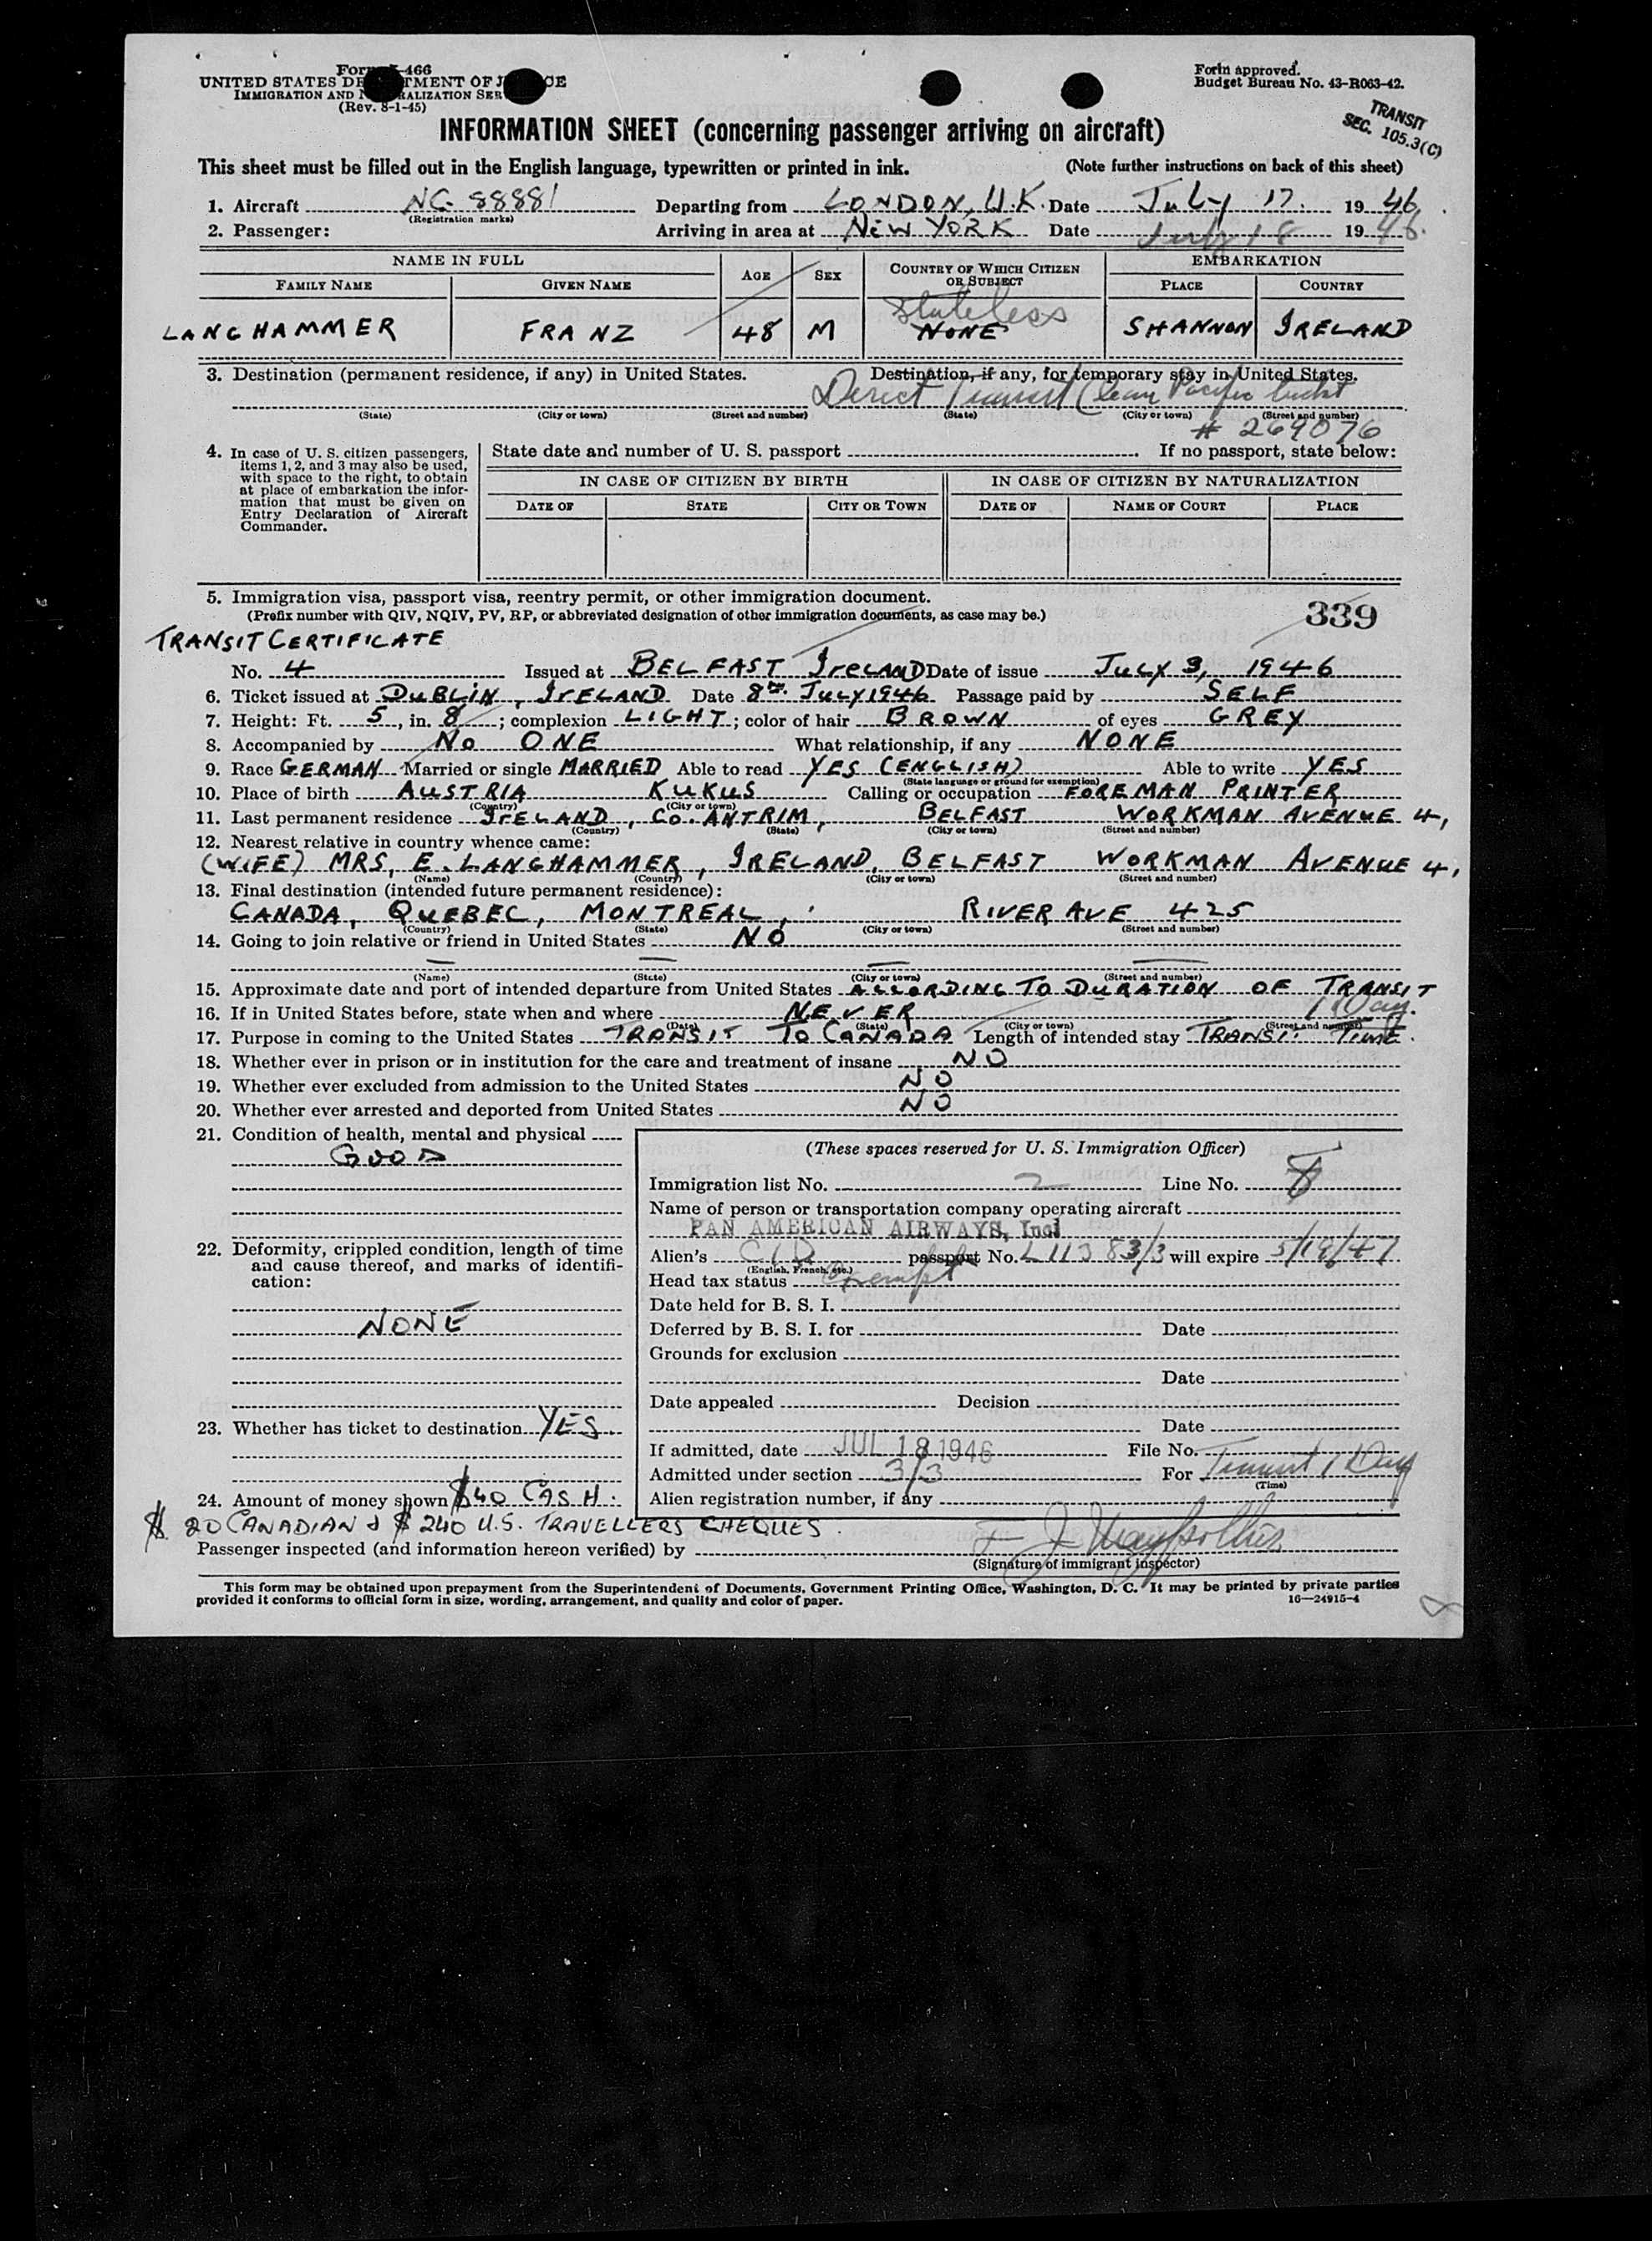 Form 466
UNITED STATES DEPARTMENT OF JUSTICE
IMMIGRATION AND NATURALIZATION SER
(Rev. 8-1-45)
Form approved.
Budget Bureau No. 43-R063-42.
TRANSIT
SEC. 105.3(C)
INFORMATION SHEET (concerning passenger arriving on aircraft)
This sheet must be filled out in the English language, typewritten or printed in ink. (Note further instructions on back of this sheet)
1. Aircraft NC 88881 Departing from LONDON, U.K. Date July 17. 1946.
(Registration marks)
2. Passenger: Arriving in area at NEW YORK Date July 18 1946.
NAME IN FULL AGE SEX COUNTRY OF WHICH CITIZEN OR SUBJECT EMBARKATION
FAMILY NAME GIVEN NAME PLACE COUNTRY
Stateless
LANGHAMMER FRANZ 48 M NONE SHANNON IRELAND
3. Destination (permanent residence, if any) in United States. Destination, if any, for temporary stay in United States.
Direct Transit Pacific
(State) (City or town) (Street and number) (State) (City or town) (Street and number)
# 269076
4. In case of U. S. citizen passengers, items 1, 2, and 3 may also be used, with space to the right, to obtain at place of embarkation the information that must be given on Entry Declaration of Aircraft Commander.
State date and number of U. S. passport . If no passport, state below:
IN CASE OF CITIZEN BY BIRTH IN CASE OF CITIZEN BY NATURALIZATION
DATE OF STATE CITY OR TOWN DATE OF NAME OF COURT PLACE
5. Immigration visa, passport visa, reentry permit, or other immigration document.
(Prefix number with QIV, NQIV, PV, RP, or abbreviated designation of other immigration documents, as case may be.)
339
TRANSIT CERTIFICATE
No. 4 Issued at BELFAST IRELAND Date of issue JULY 3, 1946
6. Ticket issued at DUBLIN, IRELAND Date 8th. JULY 1946 Passage paid by SELF
7. Height: Ft. 5, in. 8; complexion LIGHT; color of hair BROWN of eyes GREY
8. Accompanied by NO ONE What relationship, if any NONE
9. Race GERMAN Married or single MARRIED Able to read YES (ENGLISH) Able to write YES
(State language or ground for exemption)
10. Place of birth AUSTRIA KUKUS Calling or occupation FOREMAN PRINTER
(Country) (City or town)
11. Last permanent residence IRELAND, CO. ANTRIM, BELFAST WORKMAN AVENUE 4,
(Country) (State) (City or town) (Street and number)
12. Nearest relative in country whence came:
(WIFE) MRS, E. LANGHAMMER, IRELAND, BELFAST WORKMAN AVENUE 4,
(Name) (Country) (City or town) (Street and number)
13. Final destination (intended future permanent residence):
CANADA, QUEBEC, MONTREAL, RIVER AVE 425
(Country) (State) (City or town) (Street and number)
14. Going to join relative or friend in United States NO
(Name) (State) (City or town) (Street and number)
15. Approximate date and port of intended departure from United States ACCORDING TO DURATION OF TRANSIT
16. If in United States before, state when and where NEVER 1 Day.
(Date) (State) (City or town) (Street and number)
17. Purpose in coming to the United States TRANSIT TO CANADA Length of intended stay TRANSIT TIME.
18. Whether ever in prison or in institution for the care and treatment of insane NO
19. Whether ever excluded from admission to the United States NO
20. Whether ever arrested and deported from United States NO
21. Condition of health, mental and physical
GOOD
22. Deformity, crippled condition, length of time and cause thereof, and marks of identification:
NONE
23. Whether has ticket to destination YES.
24. Amount of money shown $40 CASH.
(These spaces reserved for U. S. Immigration Officer)
Immigration list No. 2 Line No. 8
Name of person or transportation company operating aircraft
PAN AMERICAN AIRWAYS, Inc.
Alien's passport No. L11383/3 will expire 5/18/47
(English, French, etc.)
Head tax status Exempt
Date held for B. S. I.
Deferred by B. S. I. for Date
Grounds for exclusion
Date
Date appealed Decision
Date
If admitted, date JUL 18 1946 File No.
Admitted under section 3/3 For Transit 1 Day
(Time)
Alien registration number, if any
$ 20 CANADIAN & $ 240 U.S. TRAVELLERS CHEQUES.
Passenger inspected (and information hereon verified) by
(Signature of immigrant inspector)
This form may be obtained upon prepayment from the Superintendent of Documents, Government Printing Office, Washington, D. C. It may be printed by private parties
provided it conforms to official form in size, wording, arrangement, and quality and color of paper. 16—24915-4